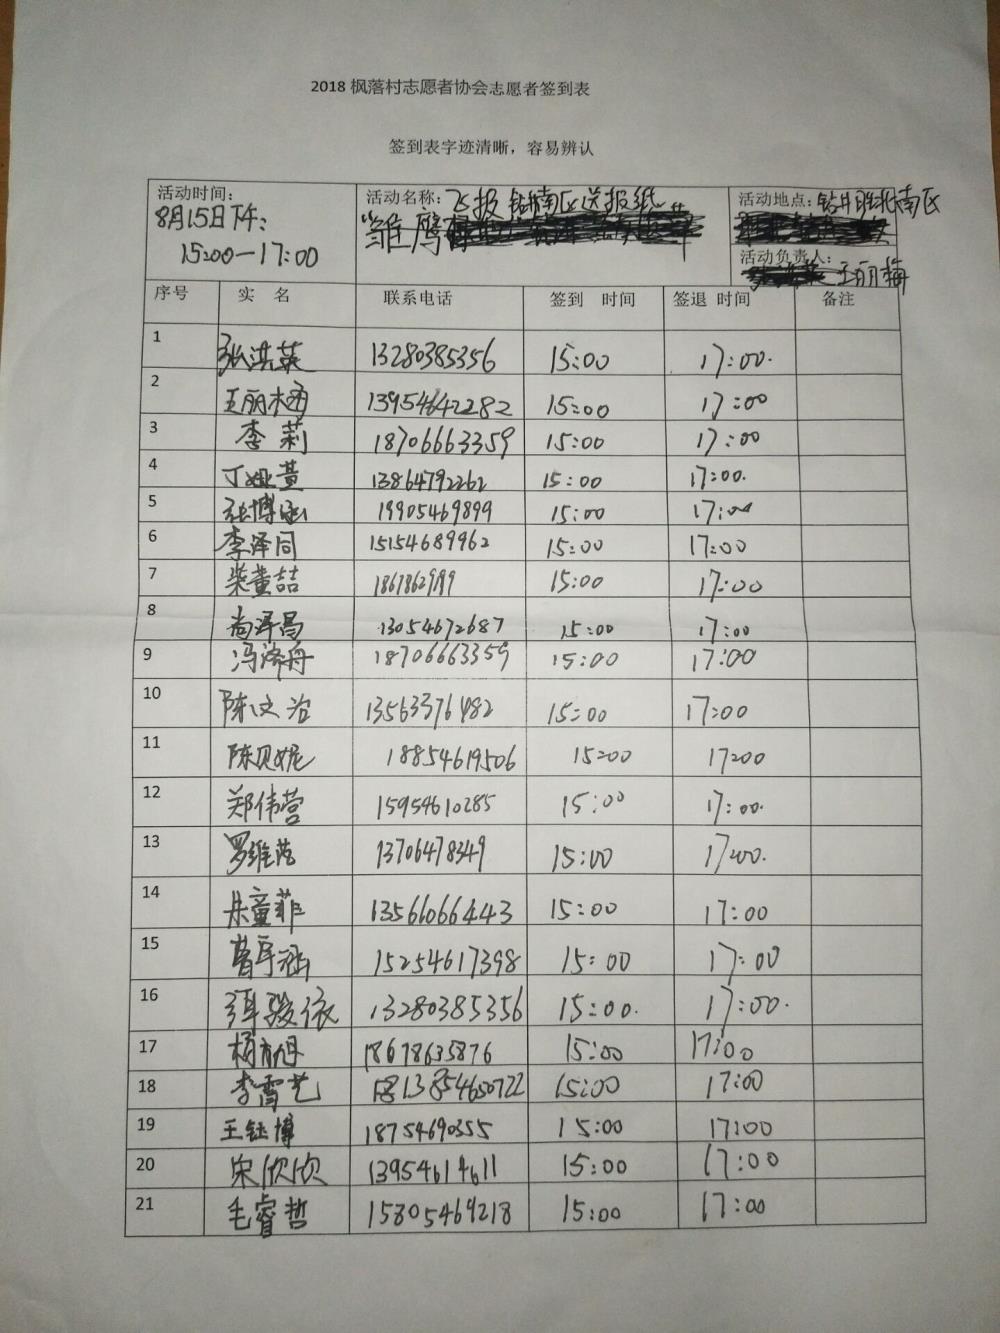 2018 枫落村志愿者协会志愿者签到表
签到表字迹清晰，容易辨认
活动时间：
8月15日下午：
15:00—17:00
活动名称：飞报 钻井南区送报纸
"雏鹰
活动地点：钻井胜北南区
活动负责人：
王丽梅
序号 实 名 联系电话 签到 时间 签退 时间 备注
1 张洪英 13280385356 15:00 17:00.
2 王丽梅 13954642282 15:00 17:00
3 李莉 18706663359 15:00 17:00
4 丁 萱 13864792262 15:00 17:00.
5 张博 19905469899 15:00 17:00
6 李泽同 15154689962 15:00 17:00
7 柴董喆 15:00 17:00
8 尚泽昌 13054672687 15:00 17:00
9 冯泽舟 18706663359 15:00 17:00
10 陈文治 13563376482 15:00 17:00
11 陈贝妮 18854619506 15:00 17:00
12 郑伟营 15954610285 15:00 17:00.
13 罗维 13706478349 15:00 17:00.
14 朱童菲 13566066443 15:00 17:00
15 曹宇涵 15254617398 15:00 17:00
16 骏依 13280385356 15:00. 17:00.
17 杨 旭 18678635876 15:00 17:00
18 李雪艺 15:00 17:00
19 王钰博 18754690355 15:00 17:00
20 宋欣欣 13954614611 15:00 17:00
21 毛睿哲 15805469218 15:00 17:00